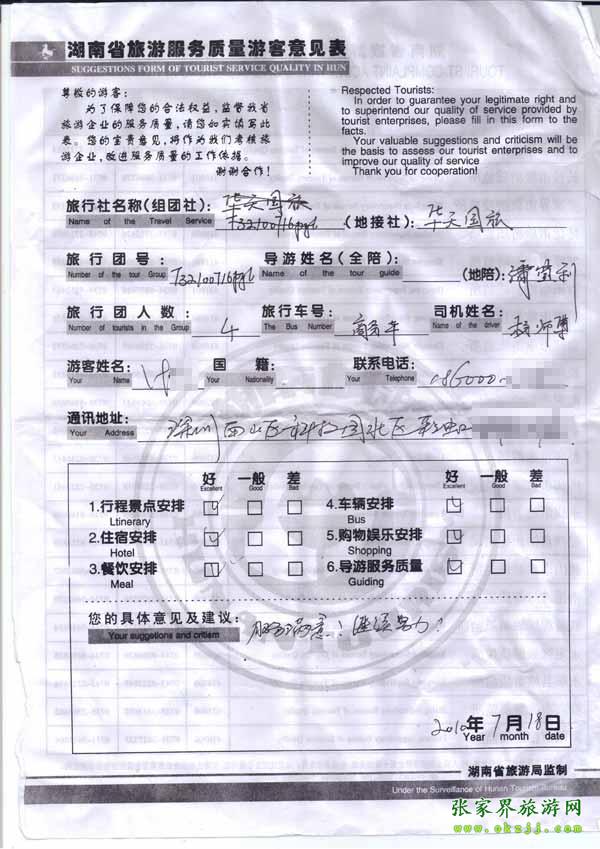 湖南省旅游服务质量游客意见表
SUGGESTIONS FORM OF TOURIST SERVICE QUALITY IN HUN
尊敬的游客:
为了保障您的合法权益,监督我省
旅游企业的服务质量,请您如实填写此
表。您的宝贵意见,将作为我们考核旅
游企业,改进服务质量的工作依据。
谢谢合作!
Respected Tourists:
In order to guarantee your legitimate right and
to superintend our quality of service provided by
tourist enterprises, please fill in this form to the
facts.
Your valuable suggestions and criticism will be
the basis to assess our tourist enterprises and to
improve our quality of service
Thank you for cooperation!
旅行社名称(组团社): 华天国旅 (地接社): 华天国旅
Name of the Travel Service
旅行团号: 导游姓名(全陪): (地陪):
Number of the tour Group Name of the tour guide
旅行团人数: 4 旅行车号: 商务车 司机姓名:
Number of tourists in the Group The Bus Number Name of the driver
游客姓名: 国籍: 联系电话:
Your Name Your Nationality Your Telephone
通讯地址: 深圳
Your Address
好 一般 差 好 一般 差
Excellent Good Bad Excellent Good Bad
1.行程景点安排 4.车辆安排
Ltinerary Bus
2.住宿安排 5.购物娱乐安排
Hotel Shopping
3.餐饮安排 6.导游服务质量
Meal Guiding
您的具体意见及建议: 服务满意!继续努力!
Your suggetions and critism
2010年7月18日
Year month date
湖南省旅游局监制
Under the Surveillance of Hunan Tourism Bureau
张家界旅游网
www.okzjj.com